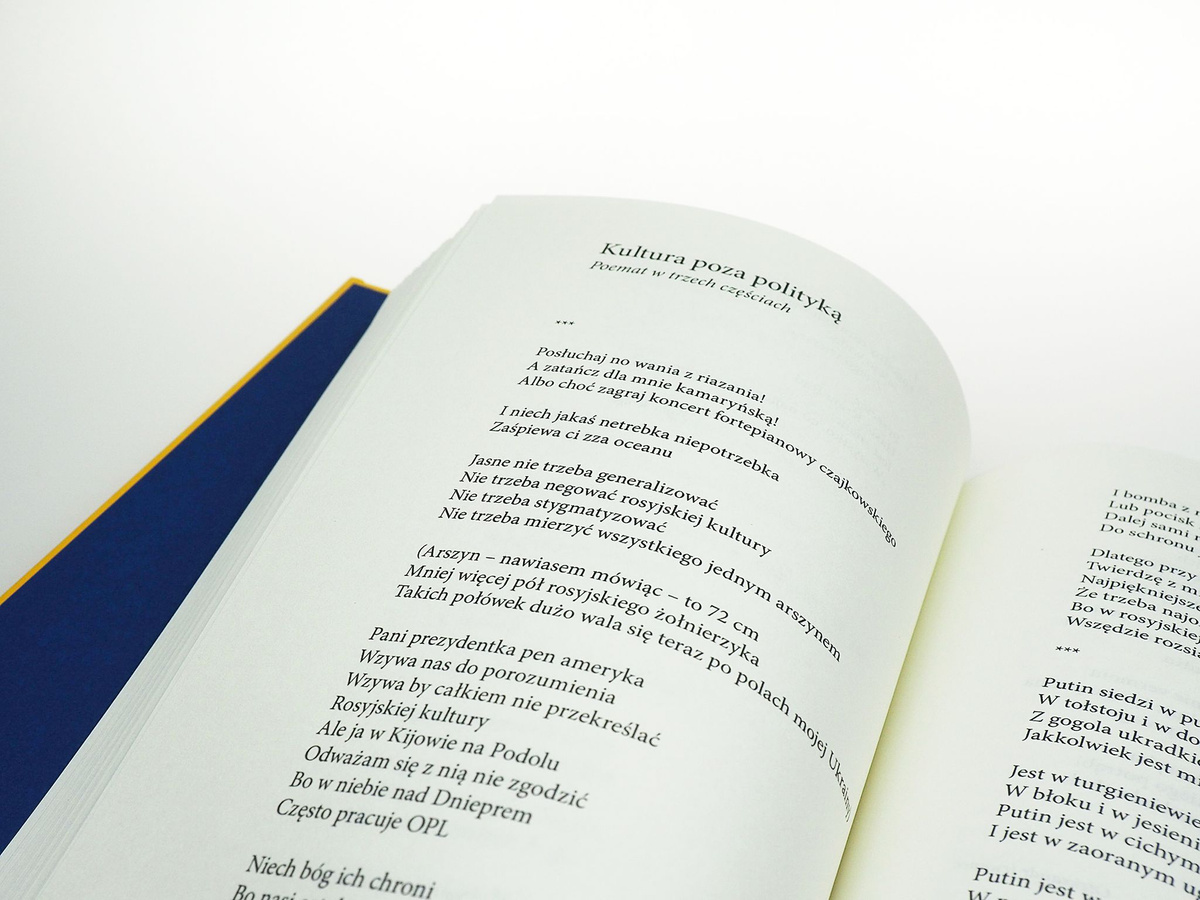 Kultura poza polityką
Poemat w trzech częściach
***
Posłuchaj no wania z riazania!
A zatańcz dla mnie kamaryńską!
Albo choć zagraj koncert fortepianowy czajkowskiego
I niech jakaś netrebka niepotrzebka
Zaśpiewa ci zza oceanu
Jasne nie trzeba generalizować
Nie trzeba negować rosyjskiej kultury
Nie trzeba stygmatyzować
Nie trzeba mierzyć wszystkiego jednym arszynem
(Arszyn – nawiasem mówiąc – to 72 cm
Mniej więcej pół rosyjskiego żołnierzyka
Takich połówek dużo wala się teraz po polach mojej Ukrainy)
Pani prezydentka pen ameryka
Wzywa nas do porozumienia
Wzywa by całkiem nie przekreślać
Rosyjskiej kultury
Ale ja w Kijowie na Podolu
Odważam się z nią nie zgodzić
Bo w niebie nad Dnieprem
Często pracuje OPL
Niech bóg ich chroni
Bo nasi
I bomba z
Lub pocisk
Dalej sami
Do schronu
Dlatego przy
Twierdzę z
Najpiękniejsze
Że trzeba
Bo w rosyjskiej
Wszędzie
***
Putin siedzi w
W tołstoju i w
Z gogola
Jakkolwiek jest
Jest w
W błoku i w
Putin jest w cichym
I jest w zaoranym
Putin jest w